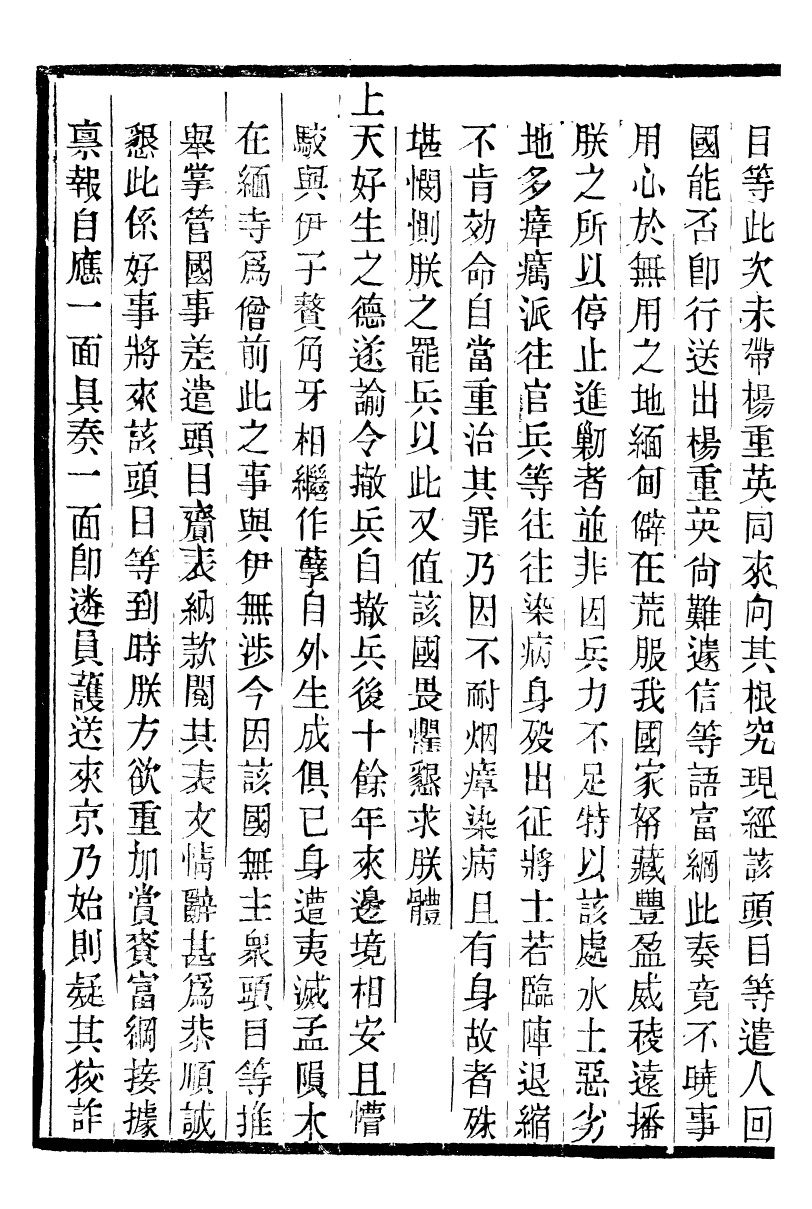 目等此次未帶楊重英同來向其根究現經該頭目等遣人回
國能否卽行送出楊重英尙難遽信等語富綱此奏竟不曉事
用心於無用之地緬甸僻在荒服我國家帑藏豐盈威稜遠播
朕之所以停止進勦者並非因兵力不足特以該處水土惡劣
地多瘴癘派往官兵等往往染病身殁出征將士若臨陣退縮
不肯効命自當重治其罪乃因不耐烟瘴染病且有身故者殊
堪憫惻朕之罷兵以此又值該國畏懼懇求朕體
上天好生之德遂諭令撤兵自撤兵後十餘年來邊境相安且懵
駮與伊子贅角牙相繼作孽自外生成俱已身遭夷滅孟隕本
在緬寺爲僧前此之事與伊無涉今因該國無主衆頭目等推
舉掌管國事差遣頭目齎表納款閱其表文情辭甚爲恭順誠
懇此係好事將來該頭目等到時朕方欲重加賞賚富綱接據
禀報自應一面具奏一面卽遴員護送來京乃始則疑其狡詐